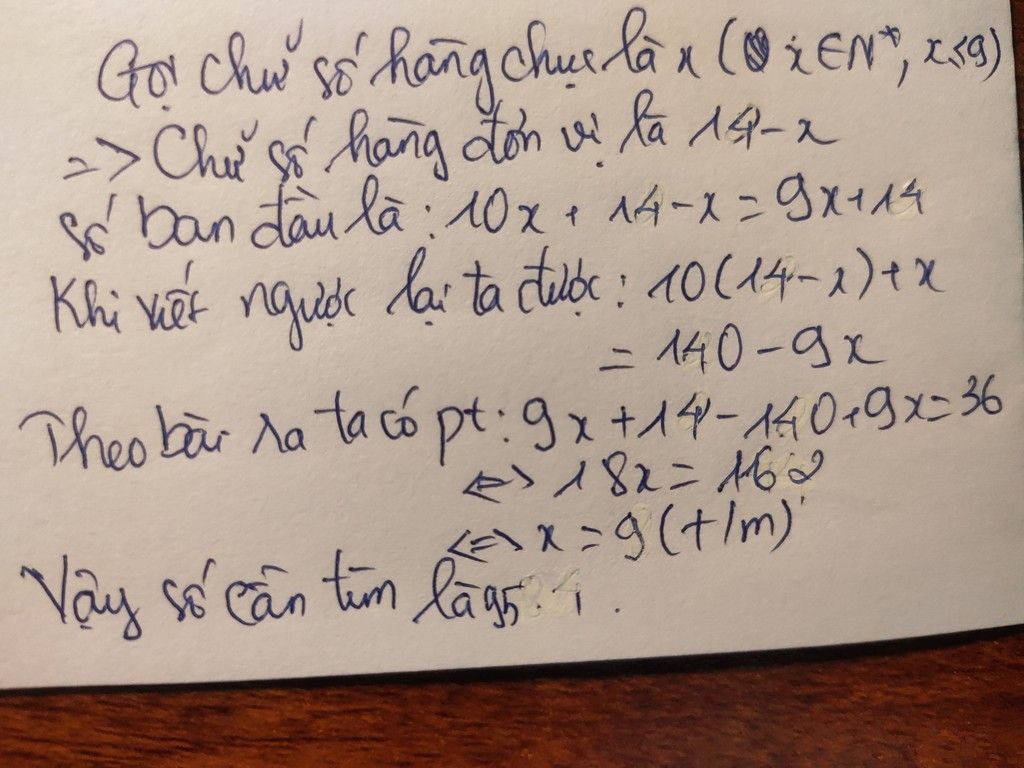 Gọi chữ số hàng chục là x ( x ∈ N*, x ≤ 9)
=> Chữ số hàng đơn vị là 14 - x
số ban đầu là: 10x + 14 - x = 9x + 14
Khi viết ngược lại ta được: 10(14 - x) + x
= 140 - 9x
Theo bài ra ta có pt: 9x + 14 - 140 + 9x = 36
<=> 18x = 162
<=> x = 9 (t/m)
Vậy số cần tìm là 95